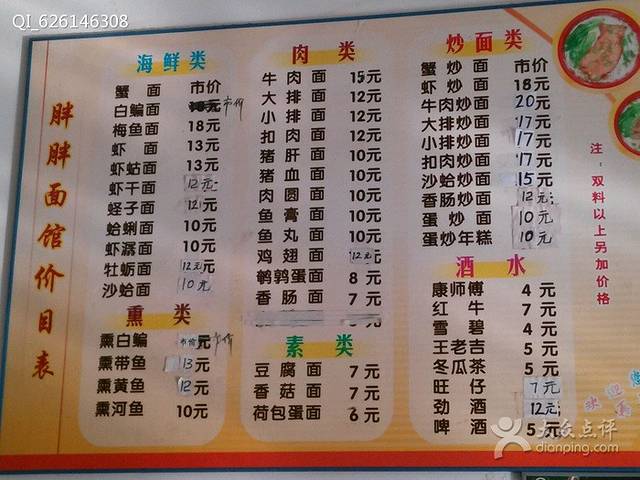 QI_626146308
胖胖面馆价目表
海鲜类
蟹面 市价
白鳊面 市价
梅鱼面 18元
虾面 13元
虾蛄面 13元
虾干面 12元
蛏子面 12元
蛤蜊面 10元
虾潺面 10元
牡蛎面 12元
沙蛤面 10元
熏类
熏白鳊 市价元 市价
熏带鱼 13元
熏黄鱼 12元
熏河鱼 10元
肉类
牛肉面 15元
大排面 12元
小排面 12元
扣肉面 12元
猪肝面 10元
猪血面 10元
肉圆面 10元
鱼膏面 10元
鱼丸面 10元
鸡翅面 12元
鹌鹑蛋面 8元
香肠面 7元
素类
豆腐面 7元
香菇面 7元
荷包蛋面 6元
炒面类
蟹炒面 市价
虾炒面 18元
牛肉炒面 20元
大排炒面 17元
小排炒面 17元
扣肉炒面 17元
沙蛤炒面 15元
香肠炒面 12元
蛋炒面 10元
蛋炒年糕 10元
酒水
康师傅 4元
红牛 7元
雪碧 4元
王老吉 5元
冬瓜茶 5元
旺仔 7元
劲酒 12元
啤酒 5元
注：双料以上另加价格
欢迎
大众点评
dianping.com